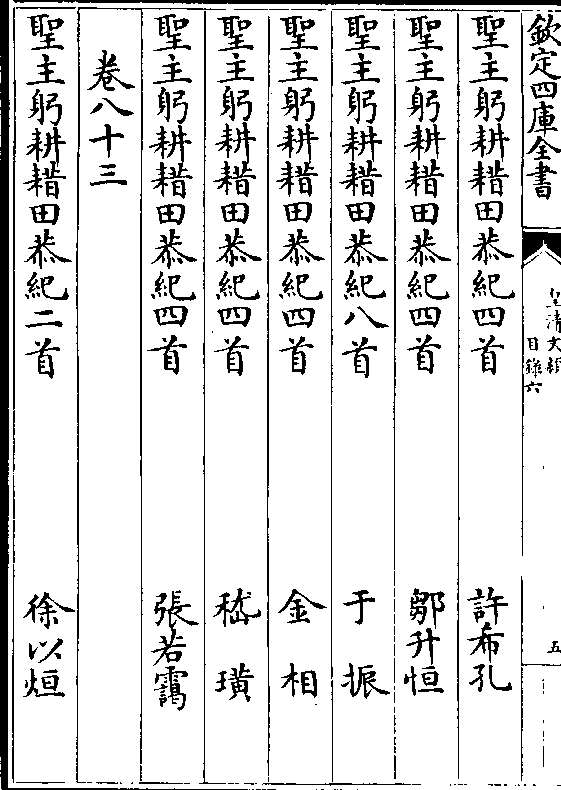 欽定四庫全書
皇清文穎
目錄六
五
聖主躬耕耤田恭紀四首 許希孔
聖主躬耕耤田恭紀四首 鄒升恒
聖主躬耕耤田恭紀八首 于振
聖主躬耕耤田恭紀四首 金相
聖主躬耕耤田恭紀四首 嵇璜
聖主躬耕耤田恭紀四首 張若靄
卷八十三
聖主躬耕耤田恭紀二首 徐以烜